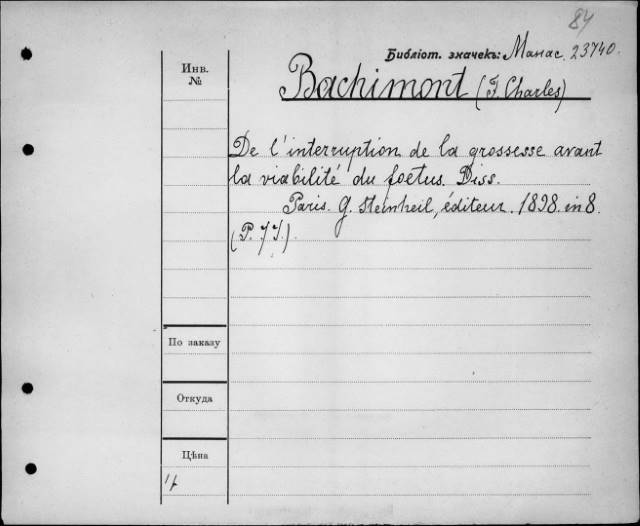 84
Библіот. значекъ: Манас. 23740.
Инв.
№
Bachimont (F. Charles)
De l'interruption de la grossesse avant
la viabilité du foetus. Diss.
Paris. G. Steinheil, éditeur. 1898. in 8.
(P. 77.)
По заказу
Откуда
Цѣна